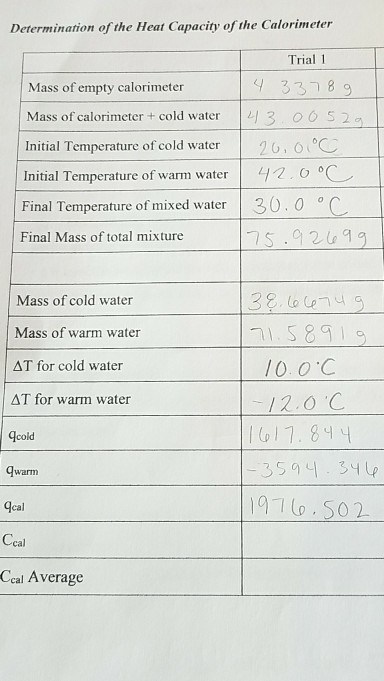 Determination of the Heat Capacity of the Calorimeter
Trial 1
Mass of empty calorimeter 4 3378 g
Mass of calorimeter + cold water 43.0052g
Initial Temperature of cold water 20.0°C
Initial Temperature of warm water 42.0 °C
Final Temperature of mixed water 30.0 °C
Final Mass of total mixture 75.9269g
Mass of cold water 38.6674g
Mass of warm water 71.5891g
ΔT for cold water 10.0°C
ΔT for warm water -12.0°C
qcold 1617.844
qwarm -3594.346
qcal 1976.502
Ccal
Ccal Average